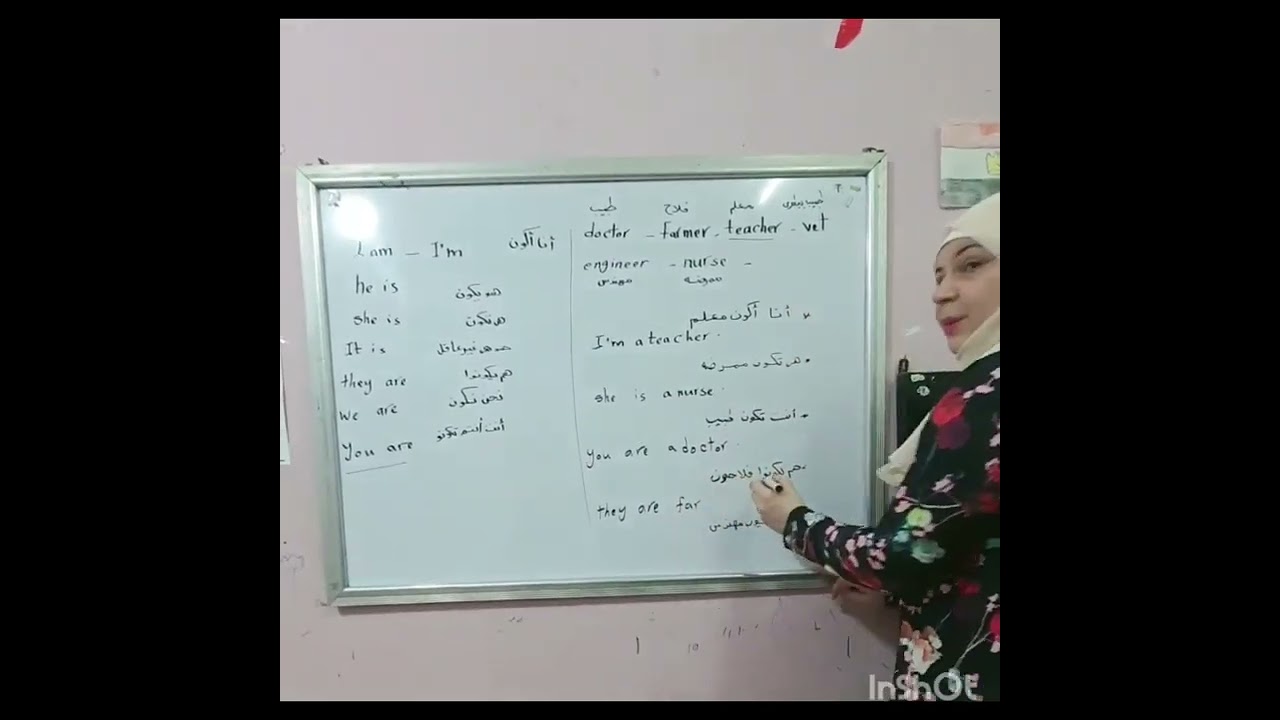 I am - I'm أنا أكون
he is هو يكون
she is هى تكون
It is
they are هم يكونوا
we are نحن نكون
you are أنت أنتم تكونو
طبيب فلاح معلم طبيب بيطرى
doctor - farmer - teacher - vet
engineer - nurse -
مهندس ممرضة
أنا أكون معلم
I'm a teacher.
هى تكون ممرضة
she is a nurse.
أنت تكون طبيب
you are a doctor.
هم يكونوا فلاحون
they are far
مهندس
InShOt